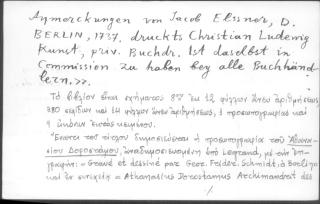 Anmerckungen von Jacob Elssner, D.
BERLIN, 1737. druckts Christian Ludewig
Kunst, priv. Buchdr. Ist daselbst in
Commission zu haben bey alle Buchhänd
lern,>>.
Τὸ βιβλίον εἶναι σχήματος 8ον ἐκ 12 φύλλων ἄνευ ἀριθμήσεως
380 σελίδων καὶ 14 φύλλων ἄνευ ἀριθμήσεως, 1 προσωπογραφίας καὶ
9 εἰκόνων ἐκτὸς κειμένου.
Ἔναντι τοῦ τίτλου δημοσιεύεται ἡ προσωπογραφία τοῦ Ἀθανα-
σίου Δοροστάμου, μὲ τὴν ἐπι-
γραφήν: = Gravé et dessiné par Geor. Frider. Schmidt, à Berlin
καὶ ἐν συνεχείᾳ = Athanasius Dorostamus Archimandrit des
/.